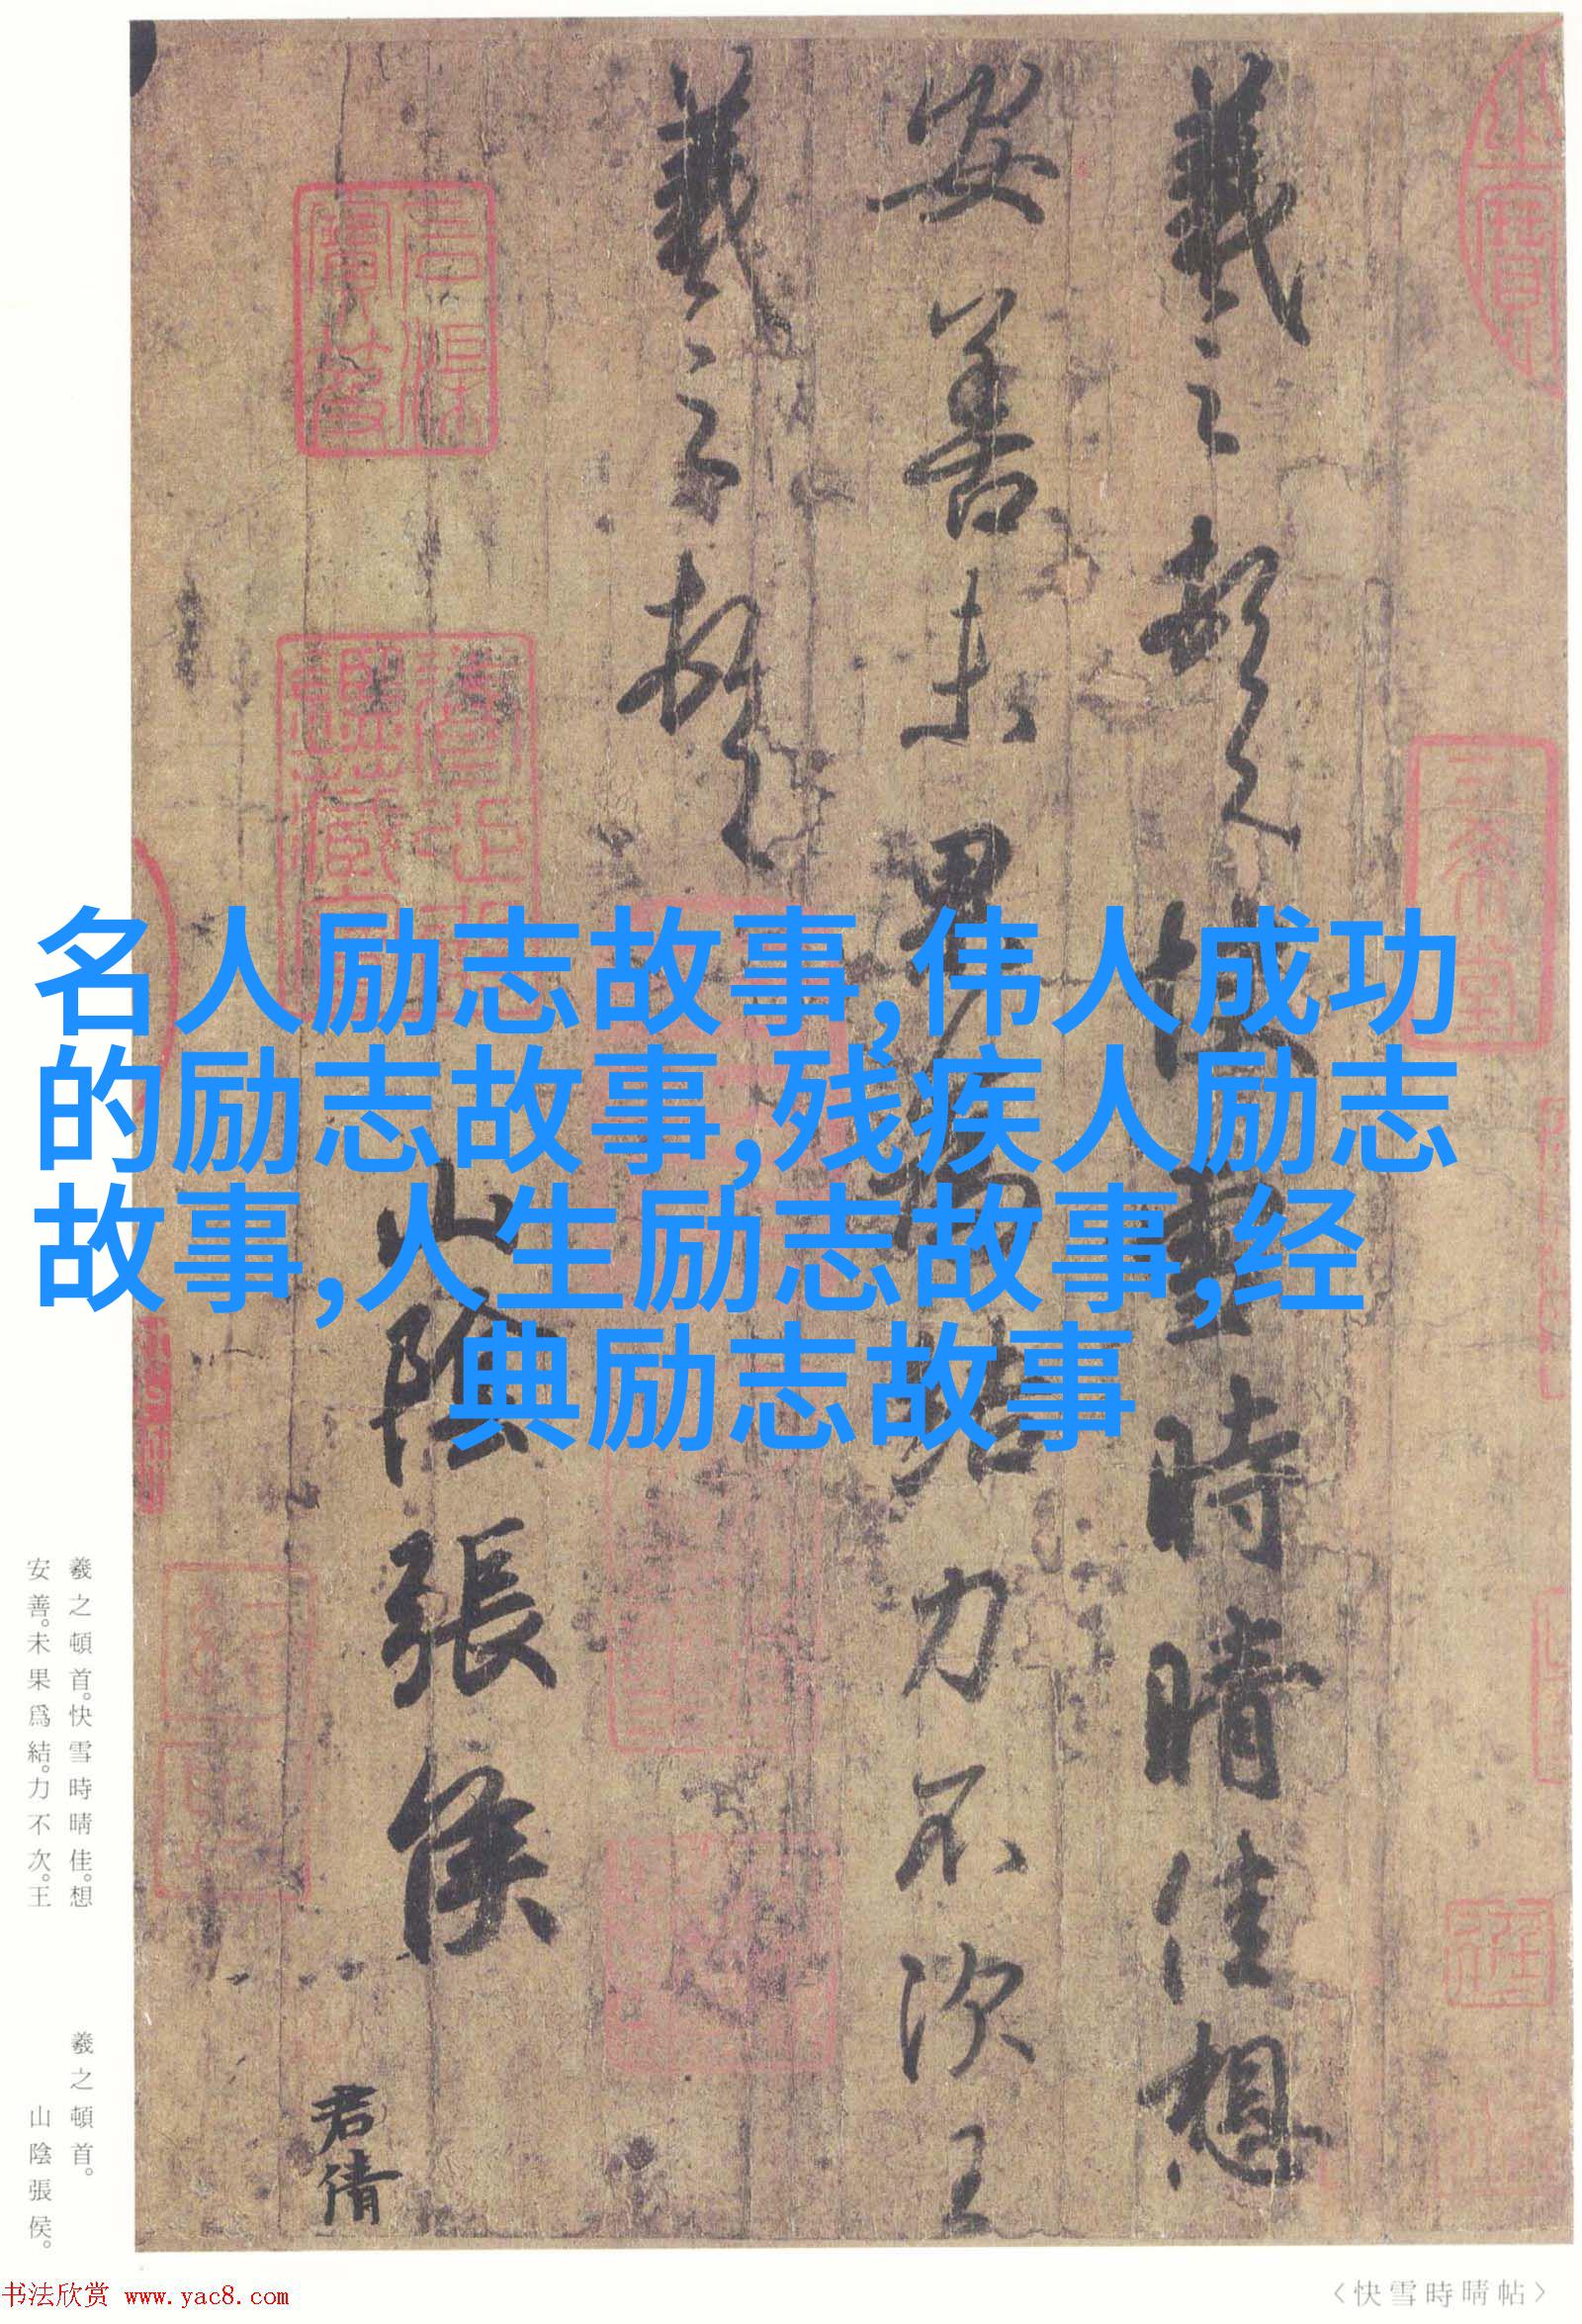 羲之頓首快雪時晴佳想
安善未果為結力不次王
羲之頓首
山陰張侯
君倩
名人励志故事,伟人成功
的励志故事,残疾人励志
故事,人生励志故事,经
典励志故事
羲之頓首。快雪時晴佳。想
安善。未果爲結。力不次。王
羲之頓首。
山陰張侯。
书法欣赏 www.yac8.com
〈快雪時晴帖〉